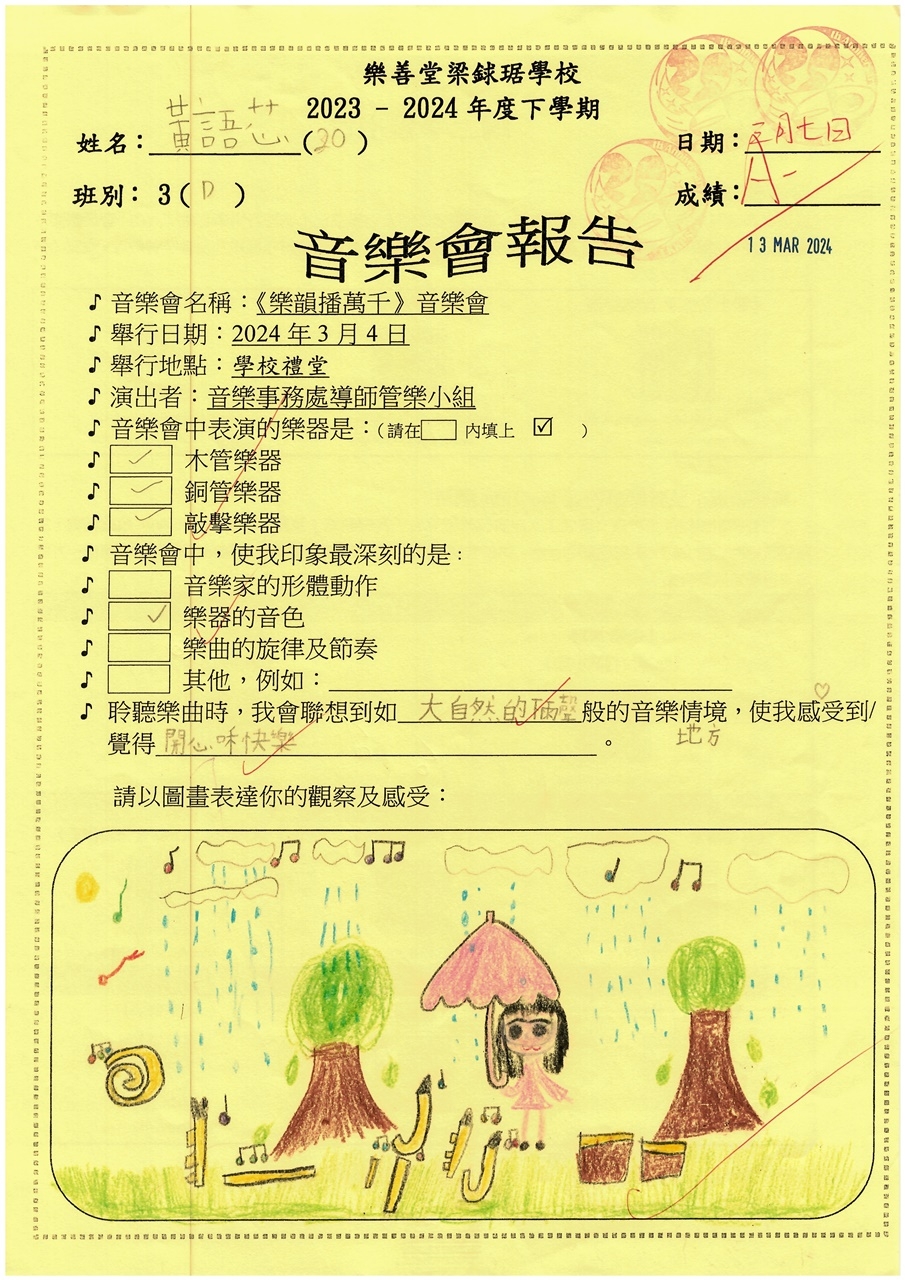 樂善堂梁銶琚學校
2023 - 2024 年度下學期
姓名：黃語芯(20)
日期：三月七日
班別：3(D)
成績：A-
13 MAR 2024
音樂會報告
♪ 音樂會名稱：《樂韻播萬千》音樂會
♪ 舉行日期：2024 年 3 月 4 日
♪ 舉行地點：學校禮堂
♪ 演出者：音樂事務處導師管樂小組
♪ 音樂會中表演的樂器是：(請在□內填上 ☑ )
♪ ✓ 木管樂器
♪ ✓ 銅管樂器
♪ ✓ 敲擊樂器
♪ 音樂會中，使我印象最深刻的是：
♪ □ 音樂家的形體動作
♪ ✓ 樂器的音色
♪ □ 樂曲的旋律及節奏
♪ □ 其他，例如：
♪ 聆聽樂曲時，我會聯想到如大自然的般的音樂情境，使我感受到/
地方
覺得開心和快樂。
請以圖畫表達你的觀察及感受：